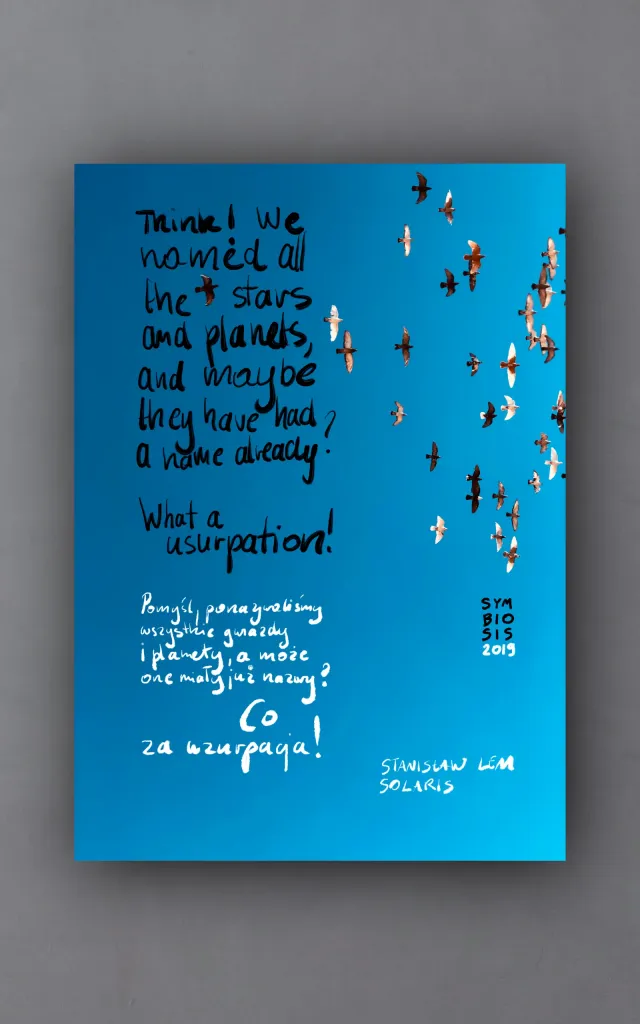 Think! We
named all
the stars
and planets,
and maybe
they have had
a name already?
What a
usurpation!
Pomyśl, ponazywaliśmy
wszystkie gwiazdy
i planety, a może
one miały już nazwy?
Co
za uzurpacja!
SYM
BIO
SIS
2019
STANISŁAW LEM
SOLARIS